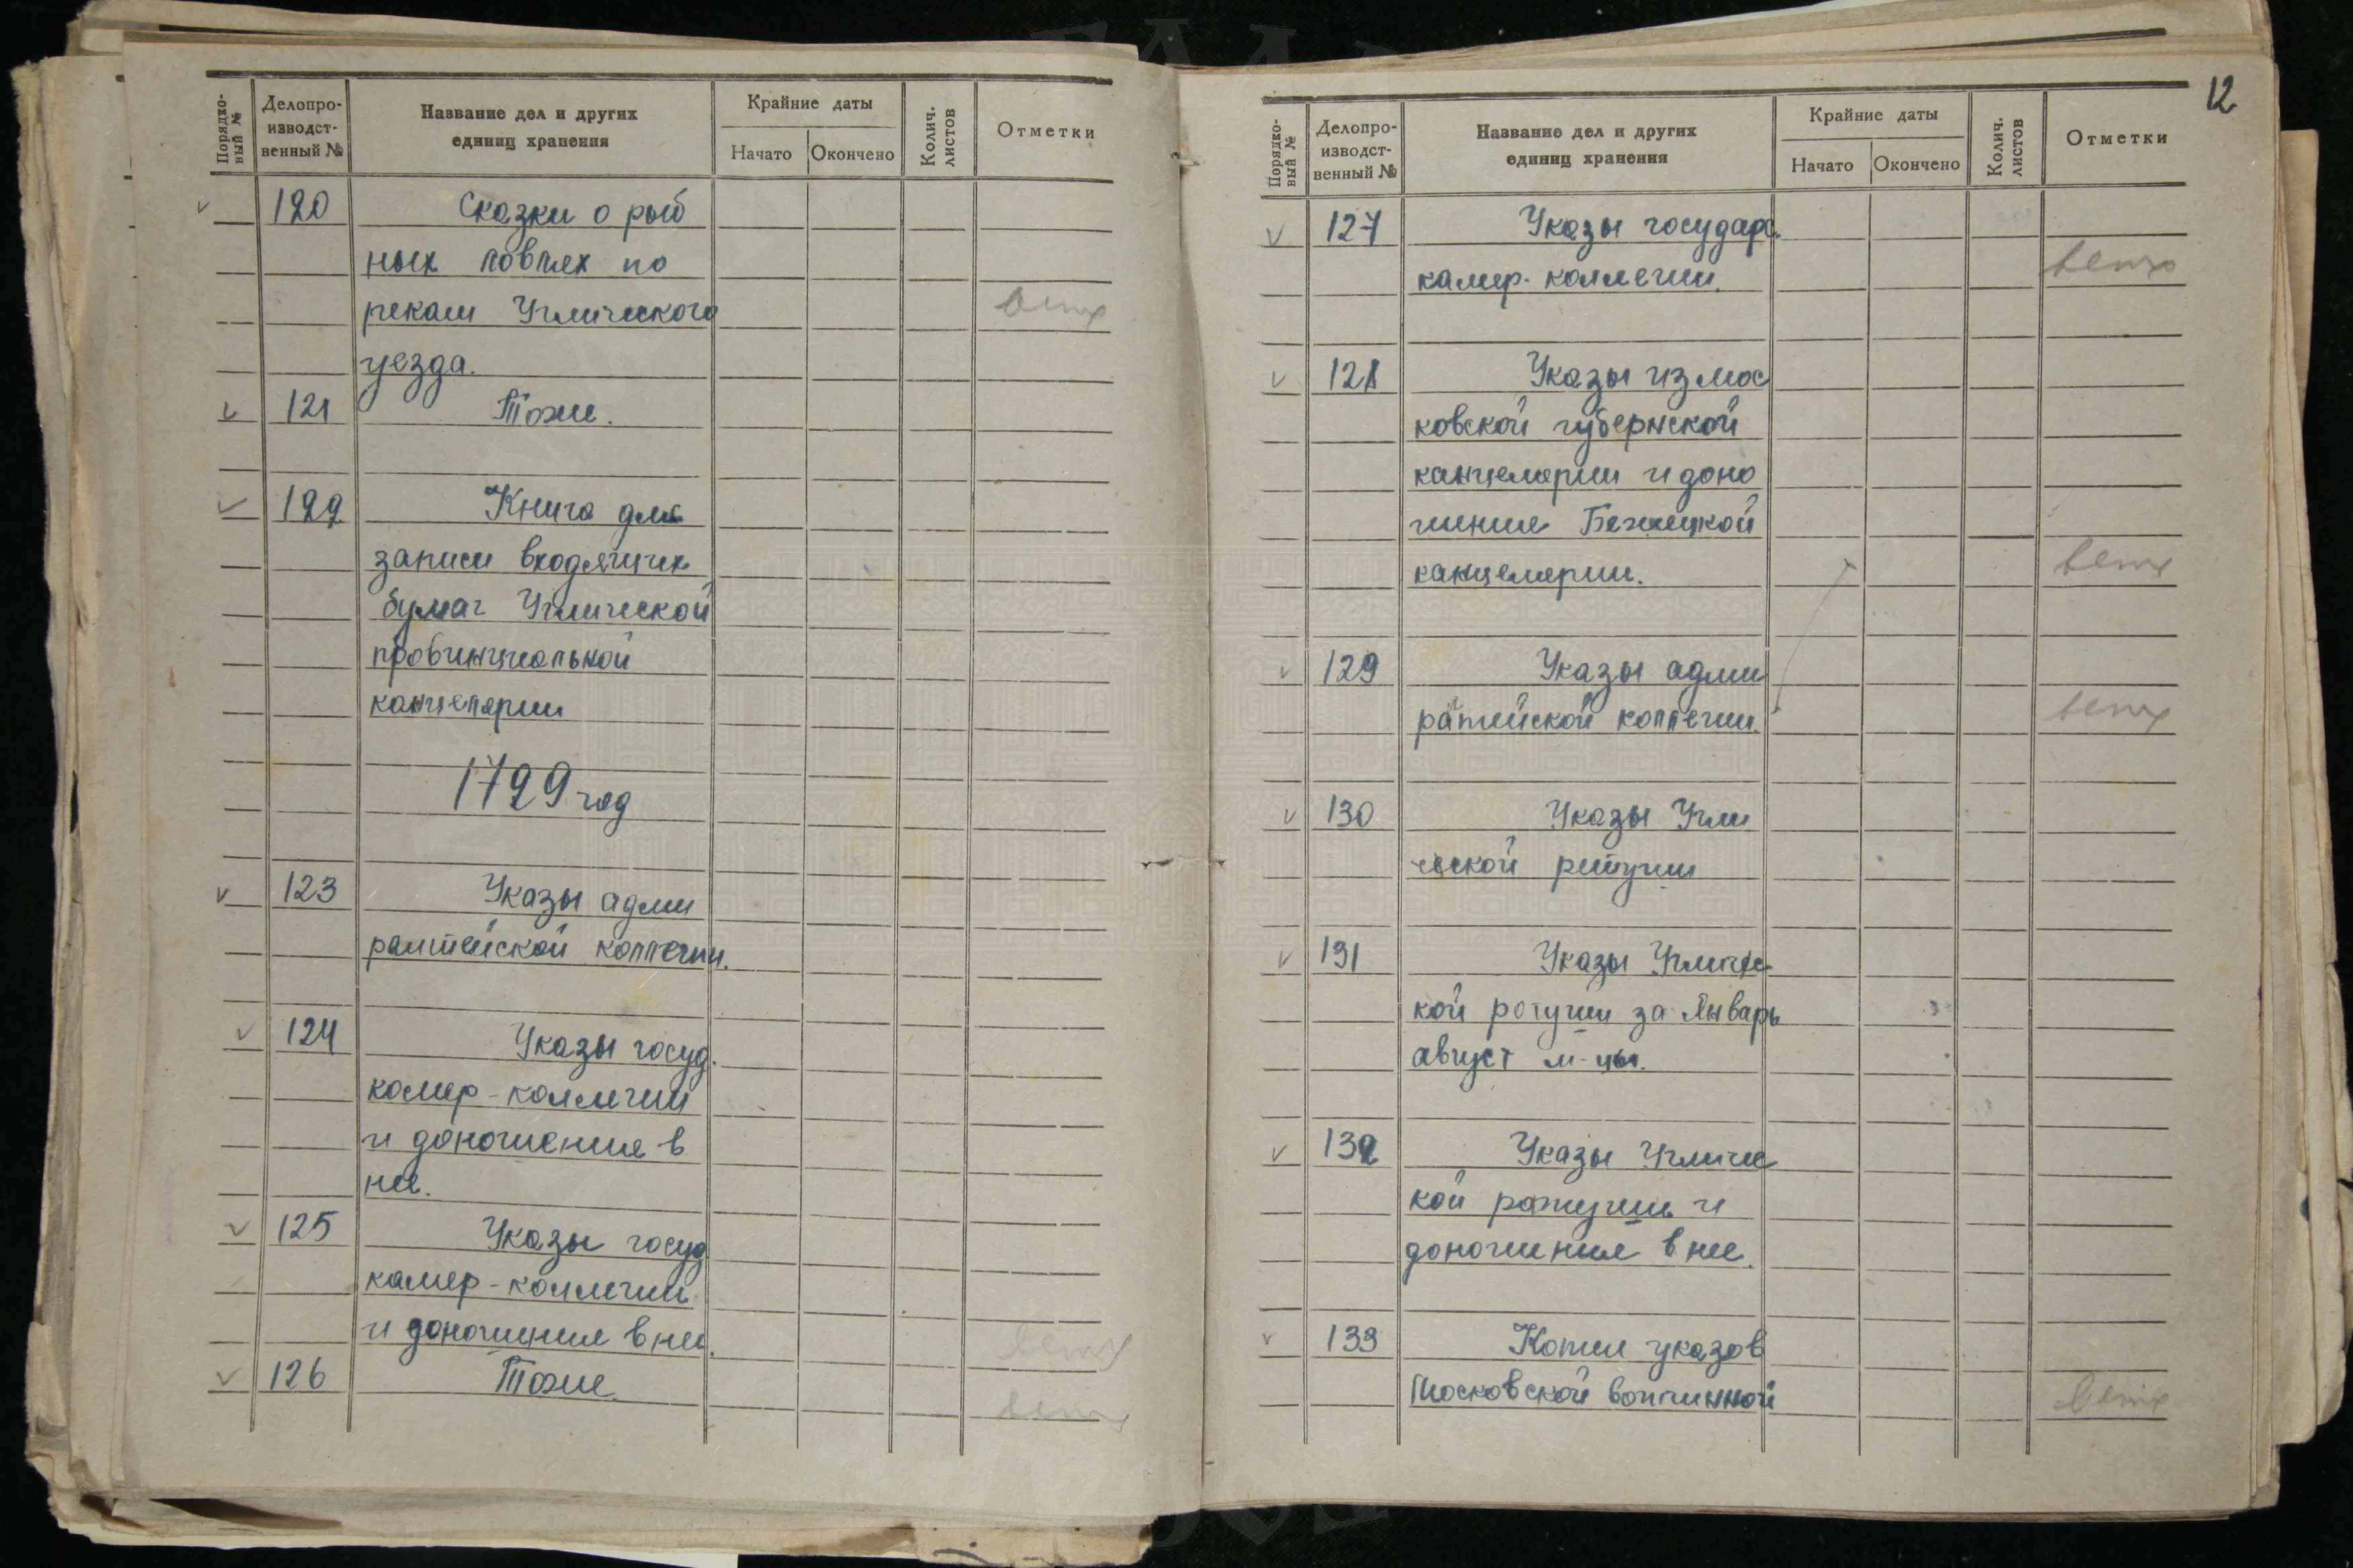 Порядко-
вый №
Делопро-
изводст-
венный №
Название дел и других
единиц хранения
Крайние даты
Начато
Окончено
Колич.
листов
Отметки
120 Сказки о рыб
ных ловлях по
рекам Угличского
ветх
уезда.
121 Тоже.
122 Книга для
записи входящих
бумаг Угличской
провинциальной
канцелярии
1729 год
123 Указы адми
ралтейской коллегии.
124 Указы госуд.
камер-коллегии
и доношения в
нее.
125 Указы госуд
камер-коллегии
и доношения в нее.
ветх
126 Тоже.
ветх
12
Порядко-
вый №
Делопро-
изводст-
венный №
Название дел и других
единиц хранения
Крайние даты
Начато
Окончено
Колич.
листов
Отметки
127 Указы государ.
камер-коллегии.
ветх
128 Указы из мос
ковской губернской
канцелярии и доно
шение Бежецкой
канцелярии.
ветх
129 Указы адми
ралтейской коллегии.
ветх
130 Указы Угли
ческой ратуши
131 Указы Угличес-
кой ратуши за Январь
август м-цы.
132 Указы Угличес
кой ратуши и
доношения в нее.
133 Копии указов
Московской вотчинной
ветх